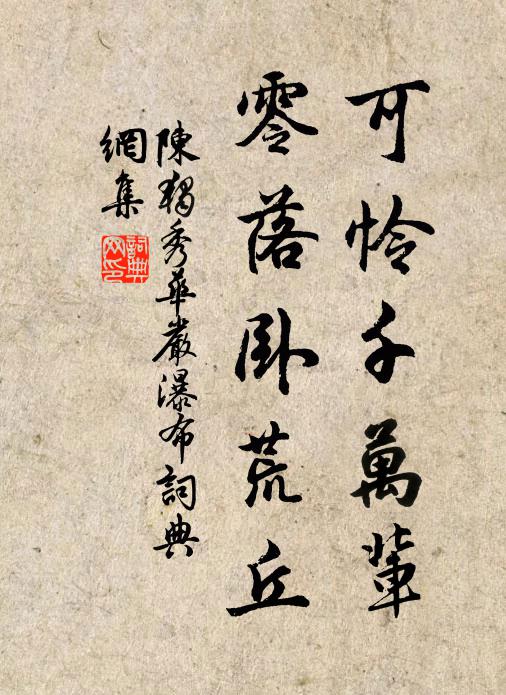 可怜千萬輩
零落卧荒丘
陳獨秀華嚴瀑布詞典
網集
詞典网印